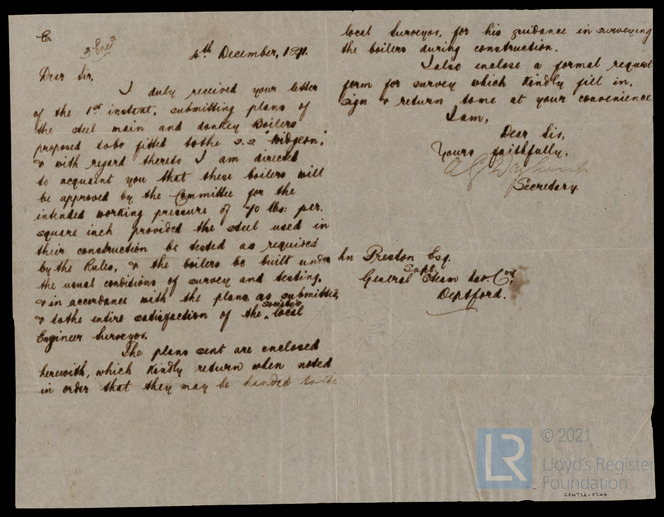 4th December, 1891.
Dear Sir,
I duly received your letter
of the 1st instant, submitting plans of
the steel main and donkey boilers
proposed to be fitted to the s.s. "Widgeon",
& with regard thereto I am directed
to acquaint you that these boilers will
be approved by the Committee for the
intended working pressure of 70 lbs: per.
square inch provided the steel used in
their construction be tested as required
by the Rules, & the boilers be built under
the usual conditions of survey and testing,
& in accordance with the plans as submitted,
& to the entire satisfaction of the Society's local
Engineer Surveyor.
The plans sent are enclosed
herewith, which kindly return when noted
in order that they may be handed to the
local Surveyor, for his guidance in surveying
the boilers during construction.
I also enclose a formal request
form for survey which kindly fill in,
sign & return same at your convenience
I am,
Dear Sir,
Yours faithfully,
Secretary.
Preston Esq.
Supt.
General Steam Nav. Coy.
Deptford.
LR
© 2021
Lloyd's Register
Foundation